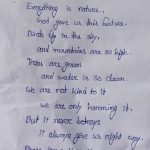 Everything is nature,
God gave us this future.
Birds fly in the sky,
and mountains are so high.
Trees are green
and water is so clean.
We are not kind to it
we are only harming it.
But it never betrays
It always give us right way.